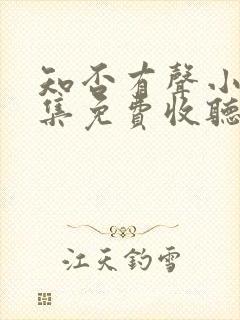 知否有聲小
集免費收聽
江天釣雪